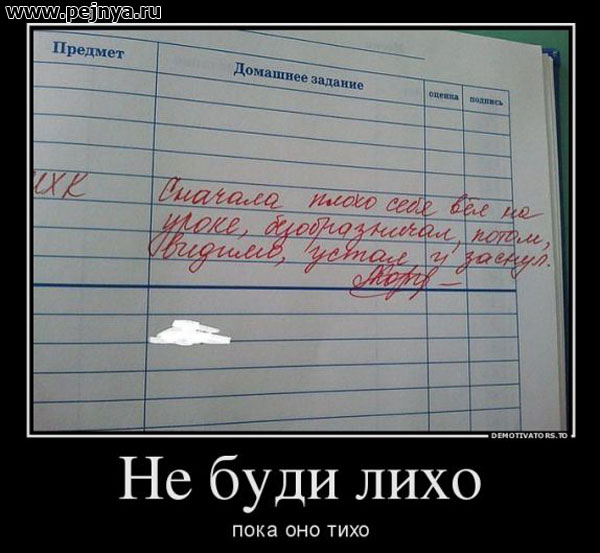 www.pejnya.ru
Предмет
Домашнее задание
оценка
подпись
МХК
Сначала плохо себя вёл на
уроке, безобразничал, потом,
видимо, устал и заснул.
DEMOTIVATORS.TO
Не буди лихо
пока оно тихо